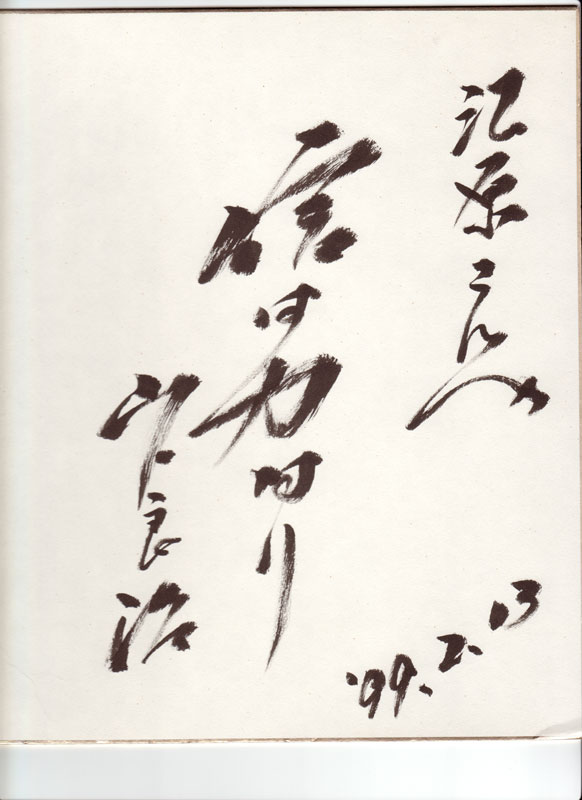 江原さんへ
信は力なり
山口良治
'99.2.13